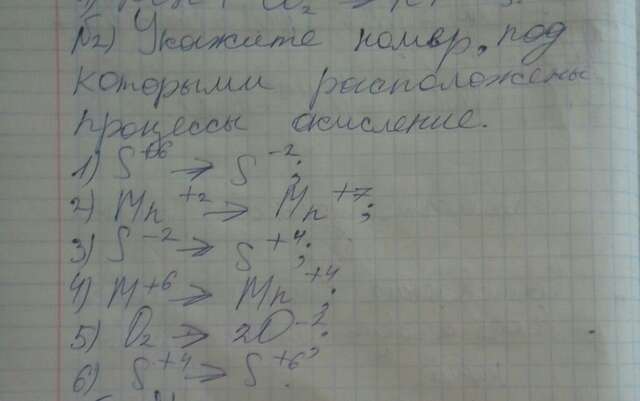 №2) Укажите номер, под
которыми расположены
процессы окисление.
1) S⁺⁶ → S⁻²;
2) Mn⁺² → Mn⁺⁷;
3) S⁻² → S⁺⁴;
4) M⁺⁶ → Mn⁺⁴;
5) O₂ → 2O⁻²;
6) S⁺⁴ → S⁺⁶;